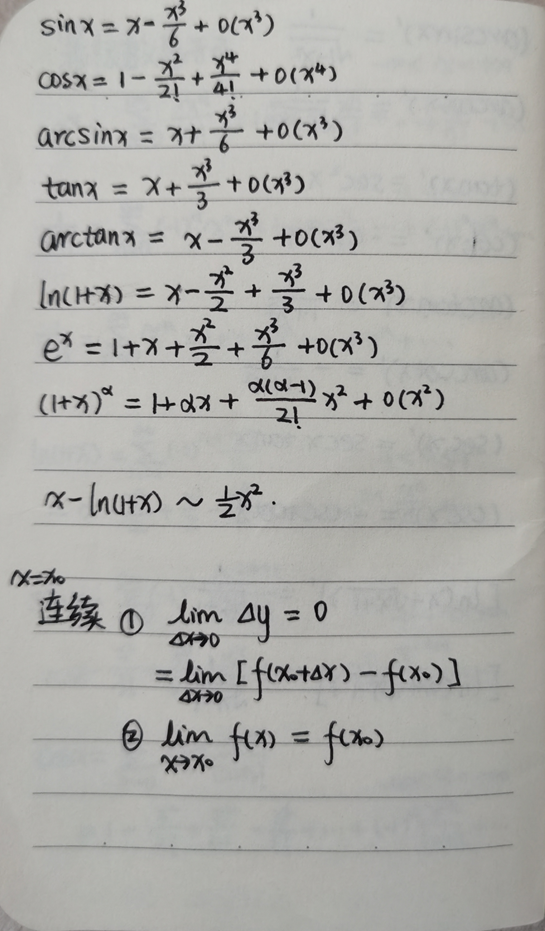 sinx = x - x³/6 + o(x³)
cosx = 1 - x²/2! + x⁴/4! + o(x⁴)
arcsinx = x + x³/6 + o(x³)
tanx = x + x³/3 + o(x³)
arctanx = x - x³/3 + o(x³)
ln(1+x) = x - x²/2 + x³/3 + o(x³)
eˣ = 1 + x + x²/2 + x³/6 + o(x³)
(1+x)^α = 1 + αx + α(α-1)/2! x² + o(x²)
x - ln(1+x) ~ ½x².
x=x₀
连续 ① lim Δx→0 Δy = 0
= lim Δx→0 [f(x₀+Δx) - f(x₀)]
② lim x→x₀ f(x) = f(x₀)